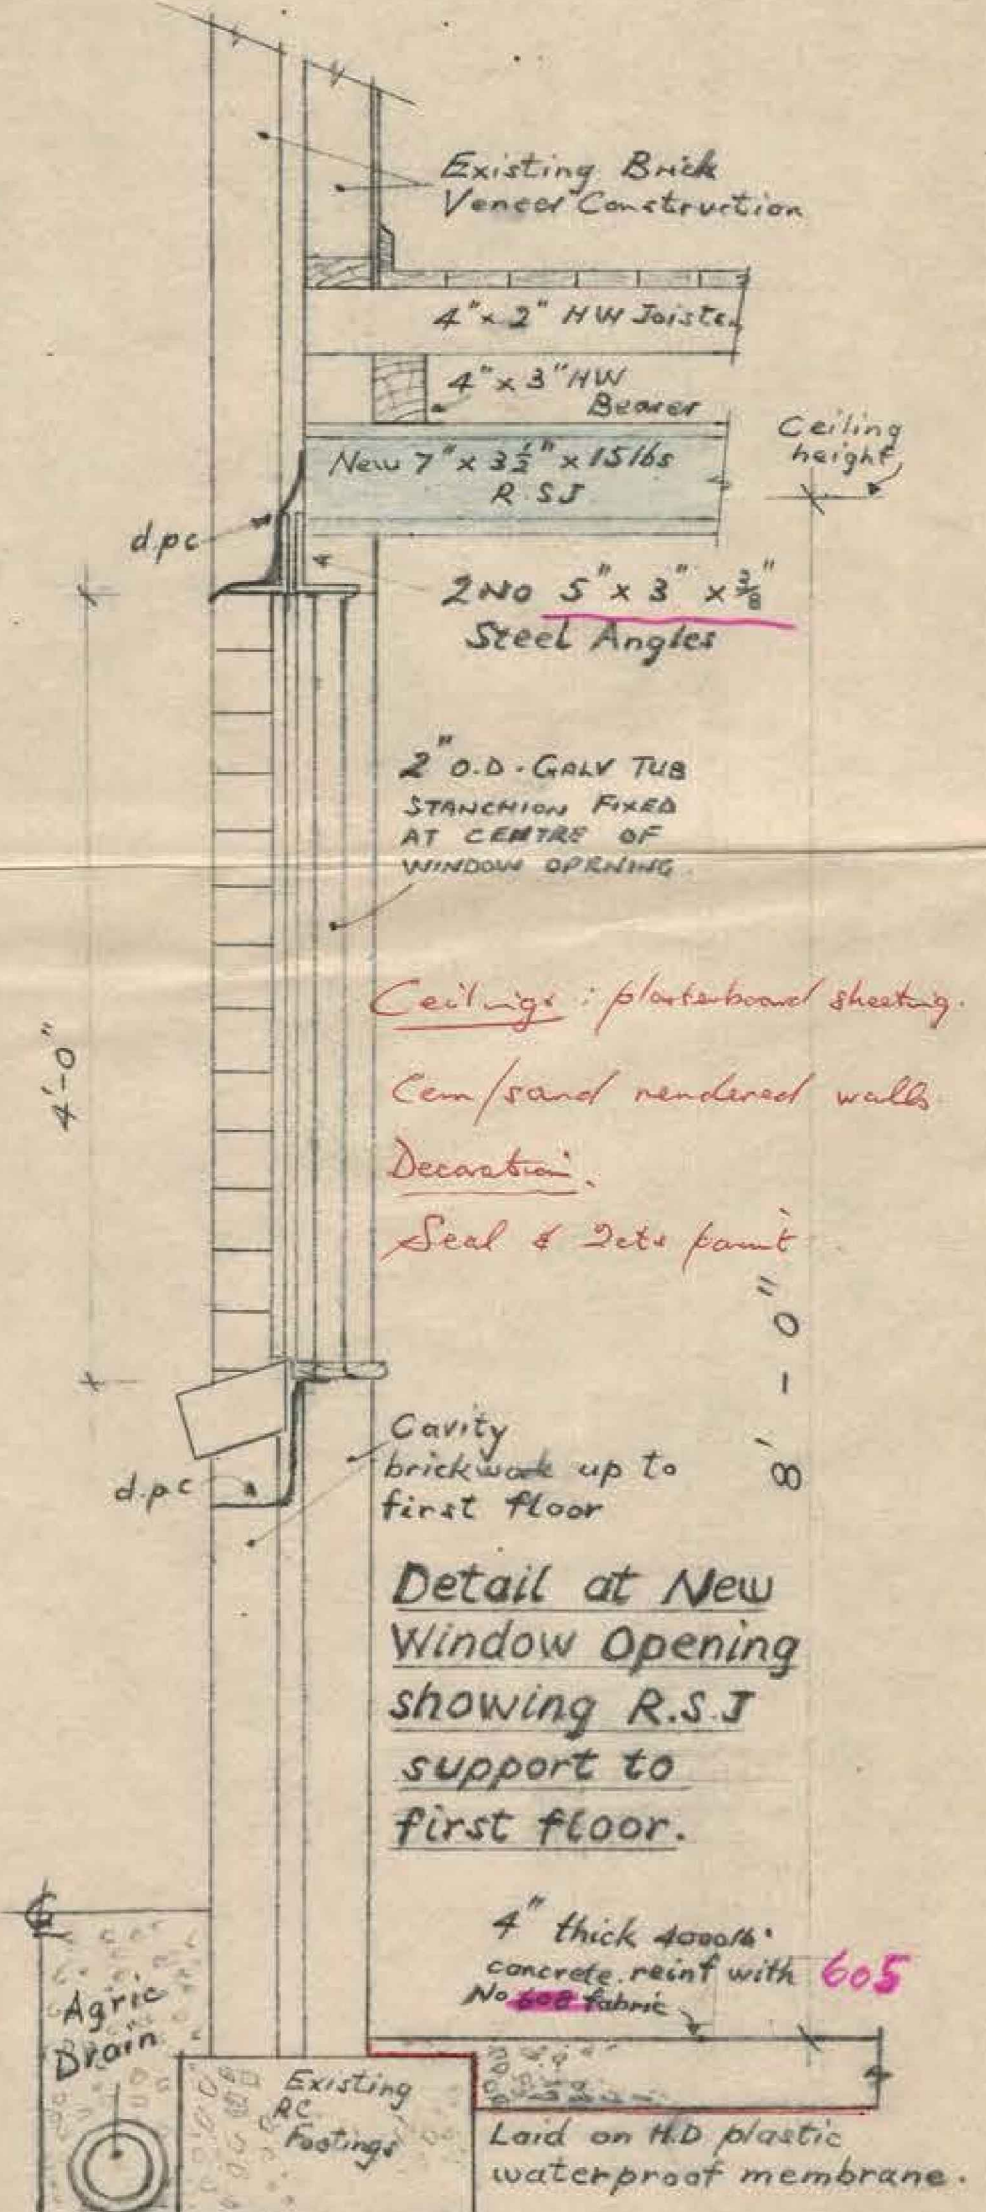 Existing Brick
Veneer Construction
4" x 2" HW Joists
4" x 3" HW
Bearer
Ceiling
height
New 7" x 3½" x 15 lbs
R.S.J
d.p.c
2 No 5" x 3" x ⅜"
Steel Angles
2" O.D. GALV TUB
STANCHION FIXED
AT CENTRE OF
WINDOW OPENING
4'-0"
Ceilings : plasterboard sheeting.
Cem/sand rendered walls
Decoration.
Seal & 2cts paint
8'-0"
Cavity
brickwork up to
first floor
d.p.c
Detail at New
Window Opening
showing R.S.J
support to
first floor.
4" thick 4000lb.
concrete reinf with 605
No 608 fabric
Agric
Drain
Existing
RC
Footings
Laid on H.D plastic
waterproof membrane.